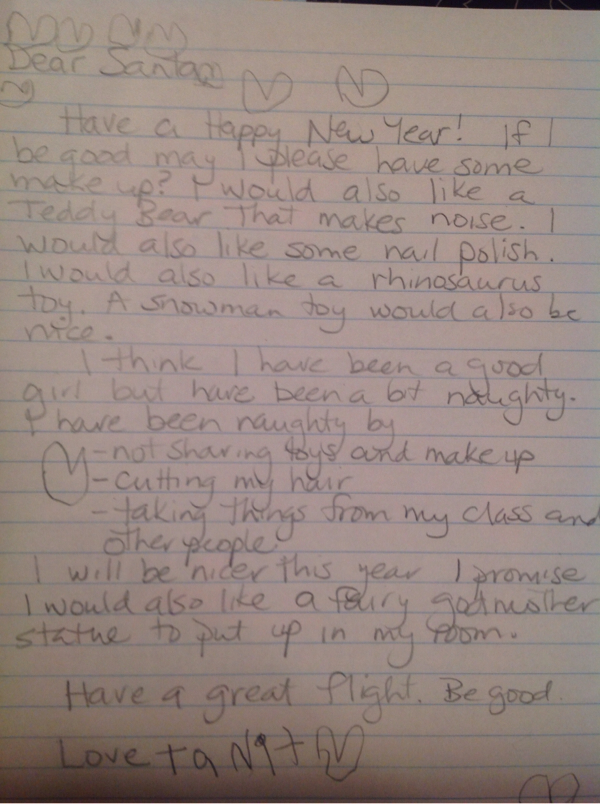 Dear Santa
Have a Happy New Year! If I
be good may I please have some
make up? I would also like a
Teddy Bear That makes noise. I
would also like some nail polish.
I would also like a rhinosaurus
toy. A snowman toy would also be
nice.
I think I have been a good
girl but have been a bit naughty.
I have been naughty by
- not sharing toys and make up
- cutting my hair
- taking things from my class and
other people.
I will be nicer this year I promise
I would also like a fairy godmother
statue to put up in my room.
Have a great flight. Be good.
Love